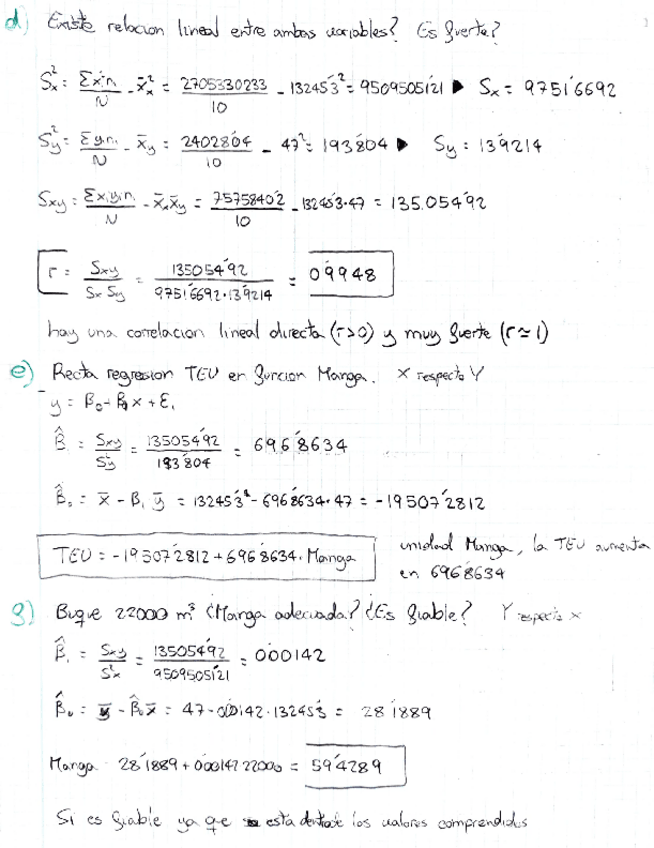 d) Existe relacion lineal entre ambas variables? Es fuerte?
S²x = Σx²i nᵢ / N - x̄²x = 2705330233 / 10 - 13245'3² = 95095051'21 ▶ Sx = 9751'6692
S²y = Σy²i nᵢ / N - x̄y = 24028'04 / 10 - 47² = 193'804 ▶ Sy = 13'9214
Sxy = Σxᵢyᵢnᵢ / N - x̄x x̄y = 7575840'2 / 10 - 13245'3·47 = 135.054'92
r = Sxy / Sx Sy = 135054'92 / 9751'6692·13'9214 = 0'9948
hay una correlacion lineal directa (r>0) y muy fuerte (r≃1)
e) Recta regresion TEU en funcion Manga. X respecto Y
y = β₀ + β₁ x + ε₁
β̂ = Sxy / S²y = 135054'92 / 193'804 = 696'8634
β̂₀ = x̄ - β₁ ȳ = 13245'3 - 696'8634·47 = -19507'2812
TEU = -19507'2812 + 696'8634·Manga
unidad Manga, la TEU aumenta
en 696'8634
g) Buque 22000 m³ ¿Manga adecuada? ¿Es fiable? Y respecto x
β̂₁ = Sxy / S²x = 135054'92 / 95095051'21 = 0'00142
β̂₀ = ȳ - β̂₀ x̄ = 47 - 0'00142·13245'3 = 28'1889
Manga 28'1889 + 0'00142·22000 = 59'4289
Si es fiable ya que esta dentro de los valores comprendidos